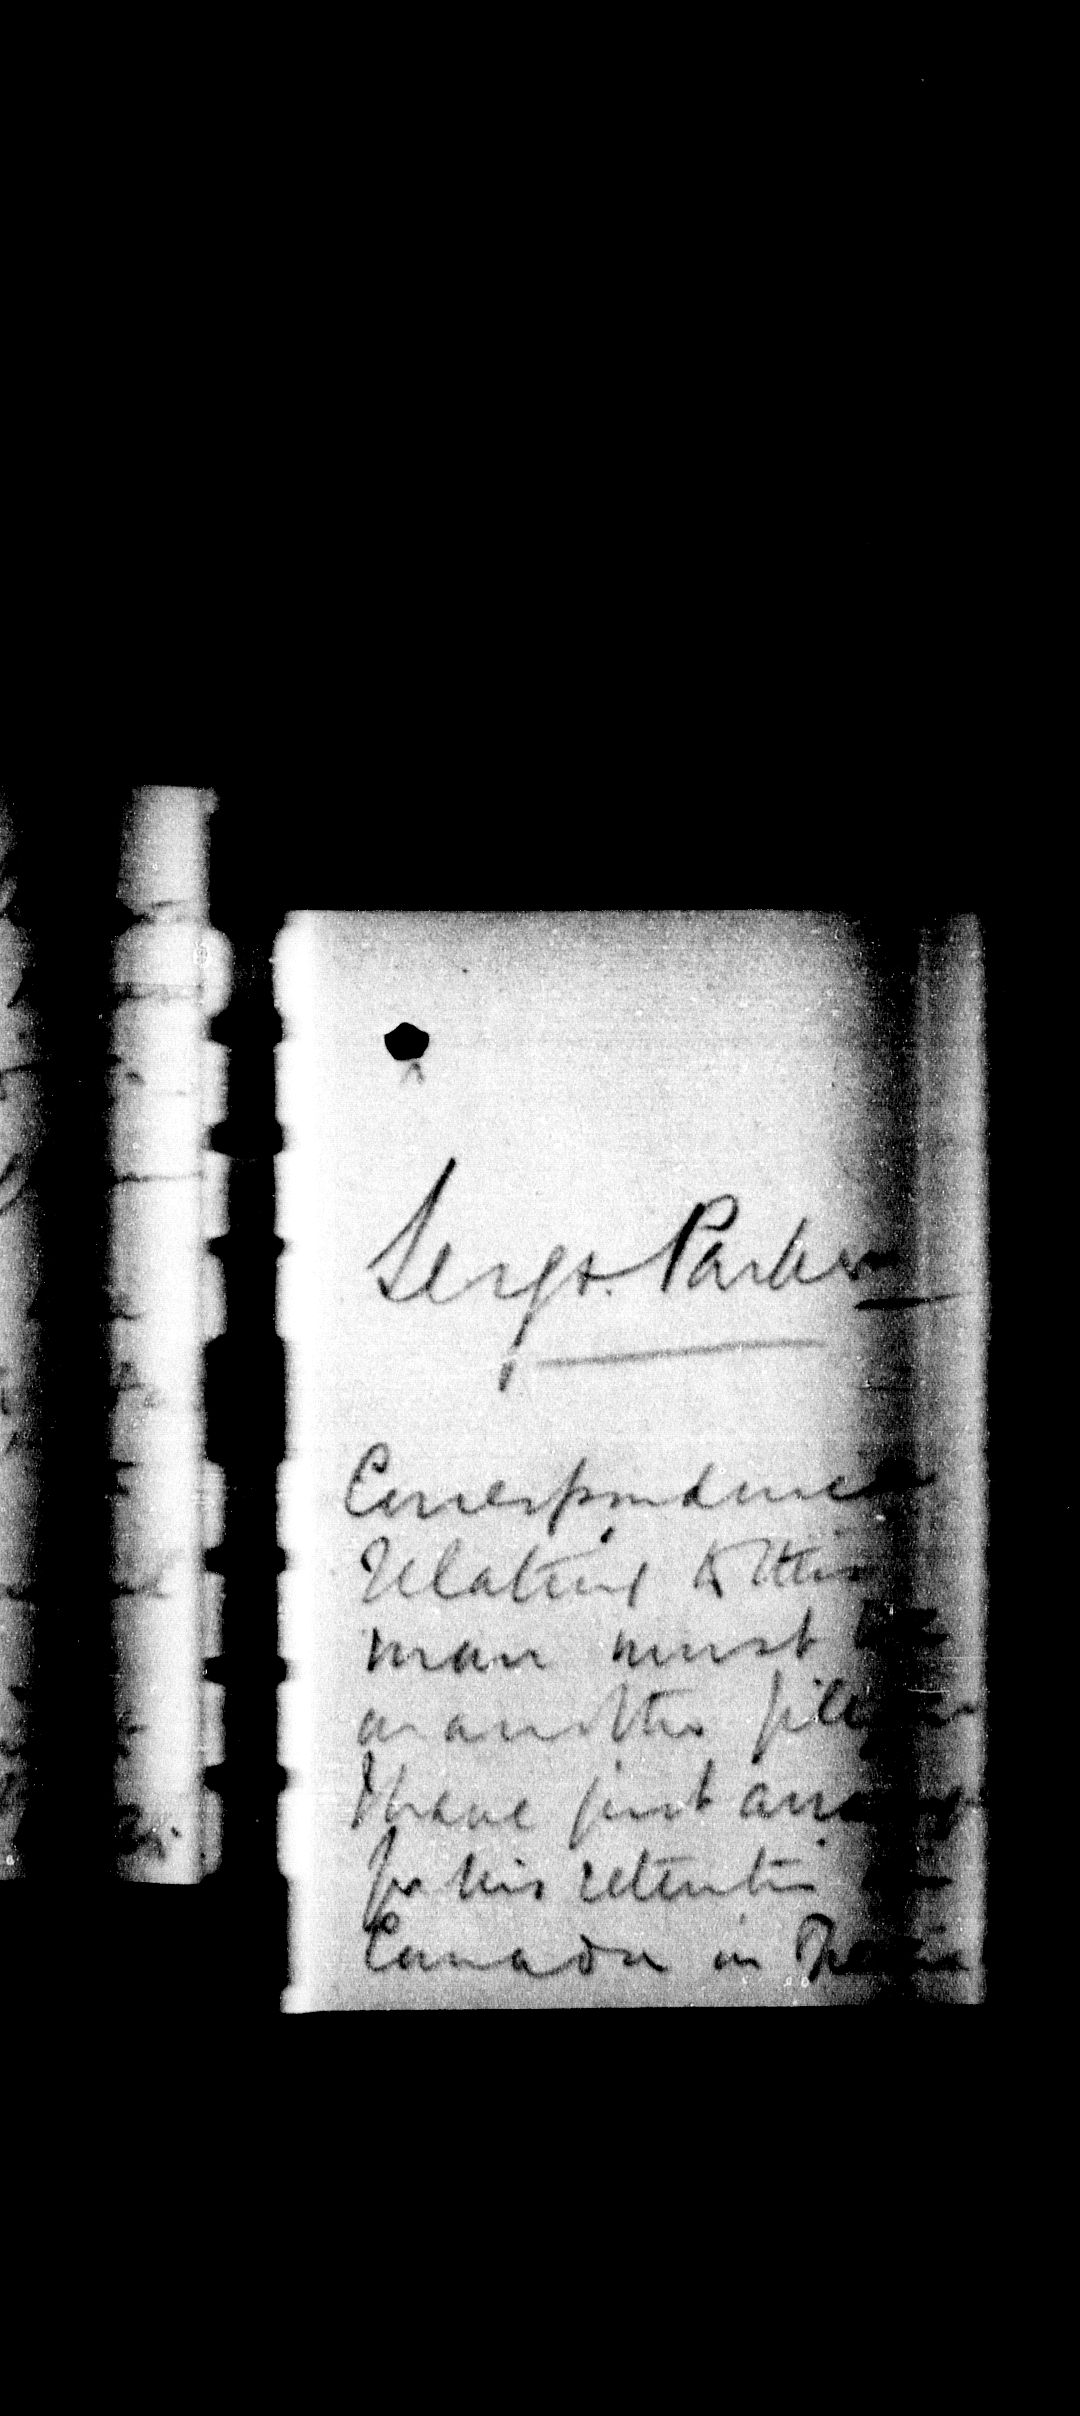 Sergt. Parker
Correspondence
relating to this
man must be
on another file
I have just
for his retention
Canada in